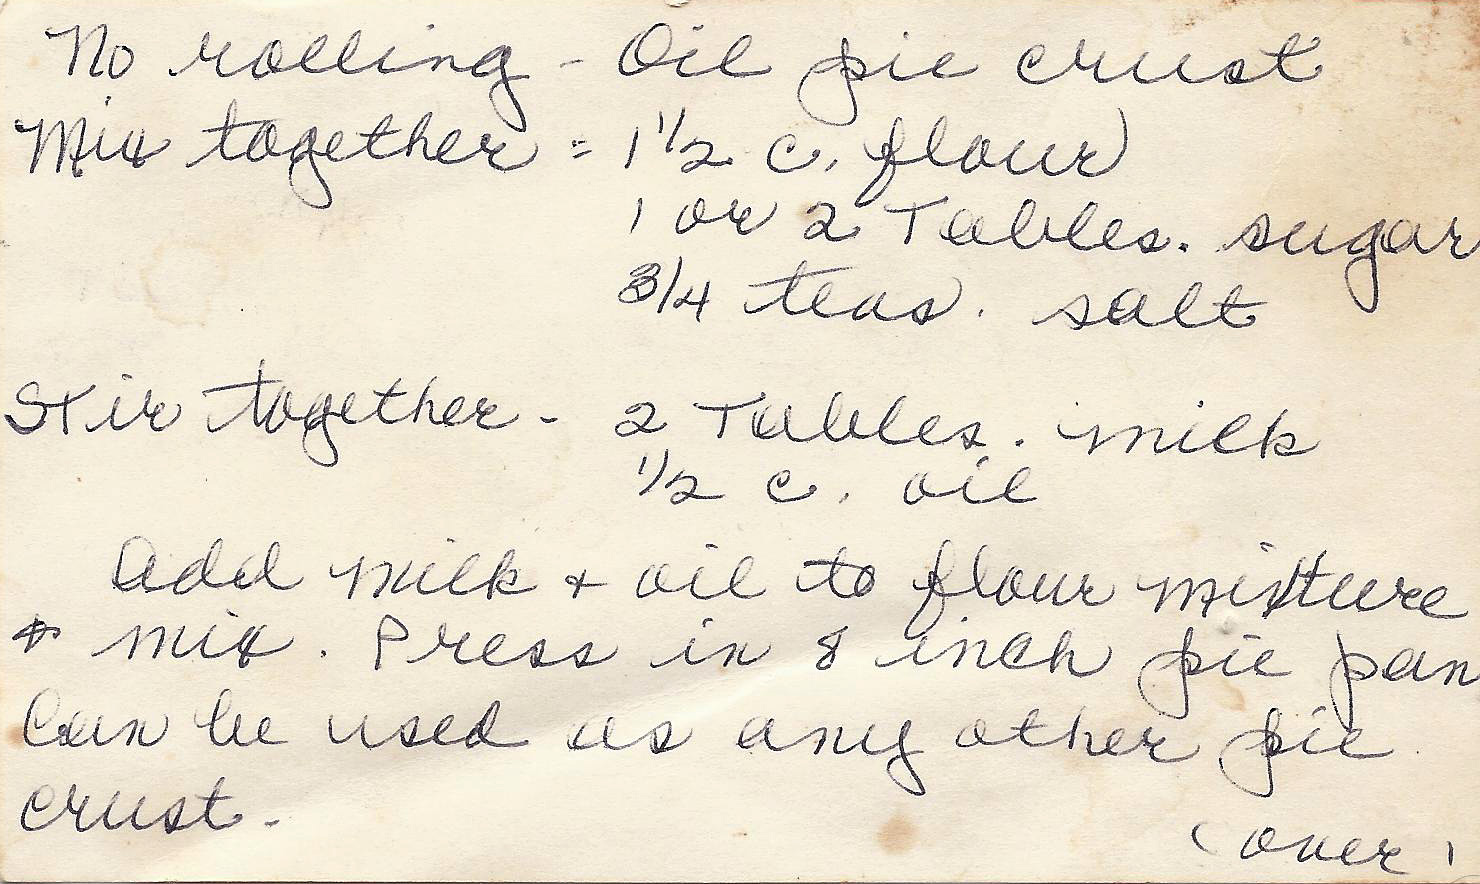 No rolling - Oil pie crust
Mix together = 1 1/2 c. flour
1 or 2 Tables. sugar
3/4 teas. salt
Stir together - 2 Tables. milk
1/2 c. oil
Add milk + oil to flour mixture
+ mix. Press in 8 inch pie pan
Can be used as any other pie
crust.
(over)